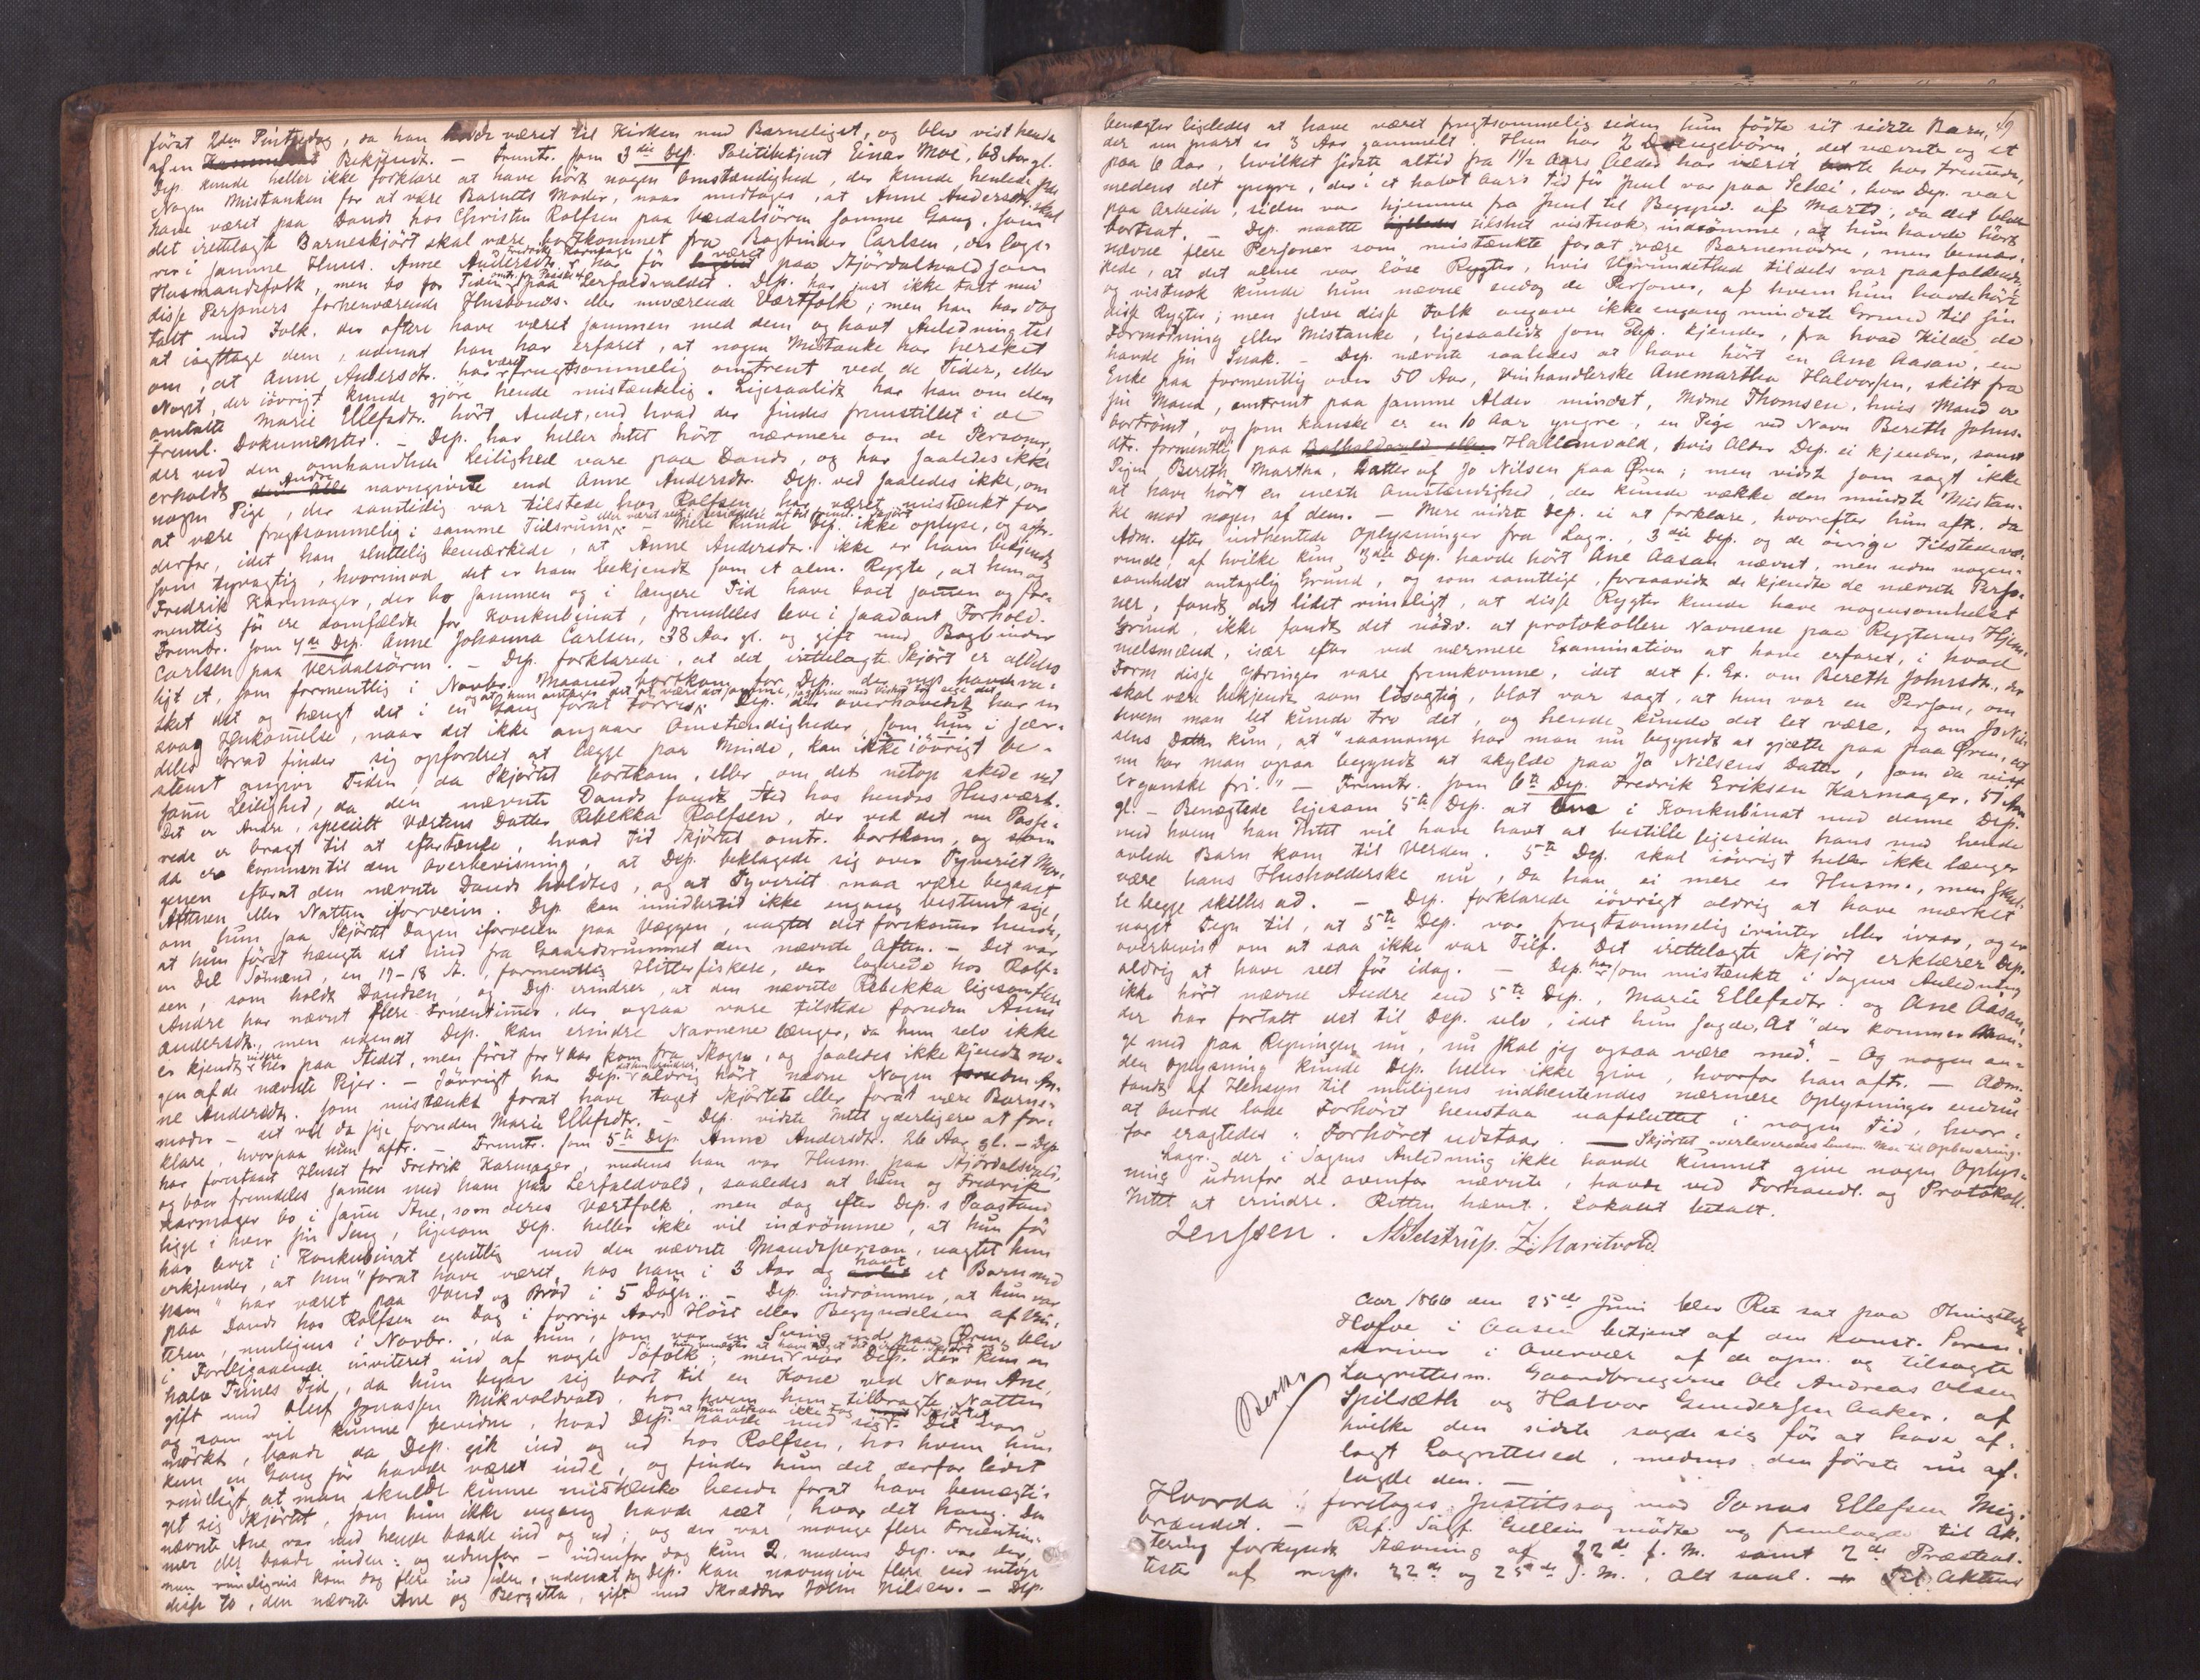 först 2den Pintsedag, da han havde været til Kirken med Barneliget, og blev vist hende
af en Bekjendt. - Fremtr. som 3die Dep. Politibetjent Einar Moe, 68 Aar gl.
Dep. kunde heller ikke forklare at have hört nogen Omstændighed, der kunde henlede paa
Nogen Mistanken for at være Barnets Moder, naar undtages, at Anne Andersdtr. skal
have været paa Dands hos Christen Rolfsen paa Værdalsören samme Gang, som
det irettelagte Barneskjört skal være bortkommet fra Bogbinder Carlsen, der loge-
rer i samme Huus. Anne Andersdtr. har för været paa Stjördalsvald som
Husmandsfolk, men bo for Tiden paa Lerfaldvaldet. Dep. har just ikke talt med
disse Personers forhenværende Husbonds- eller nuværende Værtfolk; men han har dog
talt med Folk, der oftere have været sammen med dem og havt Anledning til
at iagttage dem, uden at han har erfaret, at nogen Mistanke har hersket
om, at Anne Andersdtr. har været frugtsommelig omtrent ved de Tider, eller
Noget, der iövrigt kunde gjöre hende mistænkelig. Ligesaalidt har han om den
omtalte Marie Ellefsdtr. hört Andet, end hvad der findes fremstillet i de
freml. Dokumenter. - Dep. har heller Intet hört nærmere om de Personer,
der ved den omhandlede Leilighed vare paa Dands, og har saaledes ikke
erholdt Andre navngivne end Anne Andersdtr. Dep. ved saaledes ikke, om
nogen Pige, der samtidig var tilstede hos Rolfsen, har været mistænkt for
at være frugtsommelig i samme Tidsrum. - Mere kunde Dep. ikke oplyse, og aftr.
derfor, idet han sluttelig bemærkede, at Anne Andersdtr. ikke er ham bekjendt
som tyvagtig, hvorimod det er ham bekjendt som et alm. Rygte, at hun og
Fredrik Karmager, der bo sammen og i længere Tid have boet sammen og for-
mentlig för ere domfældte for Konkubinat, fremdeles leve i saadant Forhold.
Fremtr. som 4de Dep. Anne Johanna Carlsen, 38 Aar gl. og gift med Bogbinder
Carlsen paa Verdalsören. - Dep. forklarede, at det irettelagte Skjört er aldeles
ligt et, som formentlig i Novbr. Maaned bortkom for Dep. der nys havde va-
sket det og hængt det i en Gang forat törres. Dep. der overhovedet har en
svag Hukommelse, naar det ikke angaar Omstændigheder, som hun i sær-
deles Grad finder sig opfordret at lægge paa Minde, kan ikke iövrigt be-
stemt angive Tiden, da Skjörtet bortkom, eller om det netop skede ved
samme Leilighed, da den nævnte Dands fandt Sted hos hendes Husvært.
Det er Andre, specielt Værtens Datter Rebekka Rolfsen, der ved det nu Passe-
rede er bragt til at eftertænke, hvad Tid Skjörtet omtr. bortkom, og som
da er kommen til den Overbevisning, at Dep. beklagede sig over Tyveriet Mor-
genen efterat den nævnte Dands holdtes, og at Tyveriet maa være begaaet
Aftenen eller Natten iforveien. Dep. kan imidlertid ikke engang bestemt sige,
om hun saa Skjörtet Dagen iforveien paa Væggen, uagtet det forekommer hende,
at hun först hængte det ind fra Gaardsrummet den nævnte Aften. - Det var
en Del Sömænd, en 17-18 St., formentlig Hitterfiskere, der logerede hos Rolf-
sen, som holdt Dandsen, og Dep. erindrer, at den nævnte Rebekka ligesom flere
Andre har nævnt flere Fruentimmer, der ogsaa vare tilstede foruden Anne
Andersdtr., men uden at Dep. kan erindre Navnene længer, da hun selv ikke
er kjendt her paa Stedet, men först for 4 Aar kom fra Skogn, og saaledes ikke kjendte no-
gen af de nævnte Piger. - Iövrigt har Dep. aldrig hört nævne Nogen foruden An-
ne Andersdtr. som mistænkt forat have taget Skjörtet eller forat være Barne-
moder - det vil da sige foruden Marie Ellefsdtr. - Dep. vidste Intet yderligere at for-
klare, hvorpaa hun aftr. - Fremtr. som 5te Dep. Anne Andersdtr. 26 Aar gl. - Dep.
har forestaaet Huset for Fredrik Karmager, medens han var Husm. paa Stjördalsvald,
og boer fremdeles sammen med ham paa Lerfaldvald, saaledes at hun og Fredrik
Karmager bo i samme Stue, som deres Værtfolk, men dog efter Dep.s Paastand
ligge i hver sin Seng, ligesom Dep. heller ikke vil indrömme, at hun för
har levet i Konkubinat egentlig med den nævnte Mandsperson, uagtet hun
erkjender, at hun "forat have været hos ham i 3 Aar og havt et Barn med
ham" har været paa Vand og Bröd i 5 Dögn. - Dep. indrömmer, at hun var
paa Dands hos Rolfsen en Dag i forrige Aars Höst eller Begyndelsen af Vin-
teren, muligens i Novbr., da hun, som var en Svingned paa Ören, blev
i Forbigaaende inviteret ind af nogle Söfolk; men var Dep. der kun en
halv Times Tid, da hun begav sig bort til en Kone ved Navn Ane,
gift med Oluf Jonassen Mikvoldvald, hos hvem hun tilbragte Natten
og som vil kunne bevidne, hvad Dep. havde med sig. Det var
mörkt, baade da Dep. gik ind og ud hos Rolfsen, hos hvem hun
kun en Gang för havde været inde, og finder hun det derfor lidet
rimeligt, at man skulde kunne mistænke hende forat have bemægti-
get sig Skjörtet, som hun ikke engang havde sæt, hvor det hang. Den
nævnte Ane var med hende baade ind og ud; og der var mange flere Fruentim-
mer der baade inden- og udenfor - indenfor dog kun 2, medens Dep. var der,
men rimeligvis kom dog flere ind siden, uden at Dep. kan navngive flere end netop
disse to, den nævnte Ane og Bergitta, gift med Skrædder John Nilsen. - Dep.
49
benægter ligeledes at have været frugtsommelig siden hun födte sit sidste Barn,
der nu snart er 3 Aar gammelt. Hun har 2 Drengebörn, det nævnte og et
paa 6 Aar, hvilket sidste altid fra 1½ Aars Alder har været borte hos Fremmede,
medens det yngre, der i et halvt Aars Tid för Juul var paa Schei, hvor Dep. var
paa Arbeide, siden var hjemme fra Juul til Begynd. af Marts, da det blev
bortsat. - Dep. maatte tilsidst vistnok indrömme, at hun havde hört
nævne flere Personer som mistænkte forat være Barnemödre, men bemær-
kede, at det alene var löse Rygter, hvis Ugrundethed tildels var paafaldende,
og vistnok kunde hun nævne endog de Personer, af hvem hun havde hört
disse Rygter; men selve disse Folk angave ikke engang mindste Grund til sin
Formodning eller Mistanke, ligesaalidt som Dep. kjender, fra hvad Kilde de
havde sin Snak. - Dep. nævnte saaledes at have hört en Ane Aasan, en
Enke paa formentlig over 50 Aar, Vinhandlerske Anemartha Halvorsen, skilt fra
sin Mand, omtrent paa samme Alder mindst, Mdme Thomsen, hvis Mand er
bortrömt, og som kanske er en 10 Aar yngre, en Pige ved Navn Bereth Johns-
dtr. formentlig paa Hallemvald, hvis Alder Dep. ei kjender, samt
Pigen Bereth Martha, Datter af Jo Nilsen paa Ören; men vidste som sagt ikke
at have hört en eneste Omstændighed, der kunde vække den mindste Mistan-
ke mod nogen af dem. - Mere vidste Dep. ei at forklare, hvorefter hun aftr. da
Adm. efter indhentede Oplysninger fra Lagr., 3die Dep. og de övrige Tilstedevæ-
rende, af hvilke kun 3die Dep. havde hört Ane Aasan nævnt, men uden nogen-
somhelst antagelig Grund, og som samtlige, forsaavidt de kjendte de nævnte Perso-
ner, fandt det lidet rimeligt, at disse Rygter kunde have nogensomhelst
Grund, ikke fandt det nödv. at protokollere Navnene paa Rygternes Hjem-
melsmænd, især efter ved nærmere Examination at have erfaret, i hvad
Form disse Ytringer vare fremkomne, idet det f. Ex. om Bereth Johnsdtr., der
skal være bekjendt som lösagtig, blot var sagt, at hun var en Person, om
hvem man let kunde tro det, og hende kunde det let være, og om Jo Nil-
sens Datter kun, at "saamange har man nu begyndt at gjætte paa paa Ören, at
nu har man ogsaa begyndt at skylde paa Jo Nilsens Datter, som da vist
er ganske fri." - Fremtr. som 6te Dep. Fredrik Eriksen Karmager, 57 Aar
gl. - Benægtede ligesom 5te Dep. at leve i Konkubinat med denne Dep.
med hvem han Intet vil have havt at bestille ligesiden hans med hende
avlede Barn kom til Verden. 5te Dep. skal iövrigt heller ikke længer
være hans Husholderske nu, da han ei mere er Husm., men skul-
le begge skilles ad. - Dep. forklarede iövrigt aldrig at have mærket
noget Tegn til, at 5te Dep. var frugtsommelig ivinter eller ivaar, og er
overbevist om at saa ikke var Tilf. Det irettelagte Skjört erklærer Dep.
aldrig at have seet för idag. - Dep. har som mistænkte i Sagens Anledning
ikke hört nævne Andre end 5te Dep., Marie Ellefsdtr. og Ane Aasan,
der har fortalt det til Dep. selv, idet hun sagde, At "der kommer Man-
ge med paa Regningen nu, nu skal jeg ogsaa være med". - Og nogen an-
den Oplysning kunde Dep. heller ikke give, hvorfor han aftr. - Adm.
fandt af Hensyn til muligens indhentendes nærmere Oplysninger endnu
at burde lade Forhöret henstaa uafsluttet i nogen Tid, hvor-
for eragtedes: Forhöret udstaar. - Skjörtet overleveredes til Opbevaring.
Lagr. der i Sagens Anledning ikke havde kunnet give nogen Oplys-
ning udenfor de ovenfor nævnte, havde ved Forhandl. og Protokoll.
Intet at erindre. Retten hævet. Lokalet betalt.
Jenssen.
Aar 1866 den 25de Juni blev Ret sat paa Thingstedet
Hofve i Aasen betjent af den konst. Soren-
skriver i Overvær af de opn. og tilsagte
Lagrettesm. Gaardbrugerne Ole Andreas Olsen
Spilsæth og Halvor Gundersen Aaker, af
hvilke den sidste sagde sig för at have af-
lagt Lagretteed, medens den förste nu af-
lagde den. -
Hvorda: foretoges Justitssag mod Jonas Ellefsen Mig-
brændet. - Ref. Sagf. Gellein mödte og fremlagde til Ak-
tering forkyndt Stævning af 22de f. M. samt 2de Præsteat-
tester af resp. 22de og 25de f. M., Alt saal. - Til Aktens